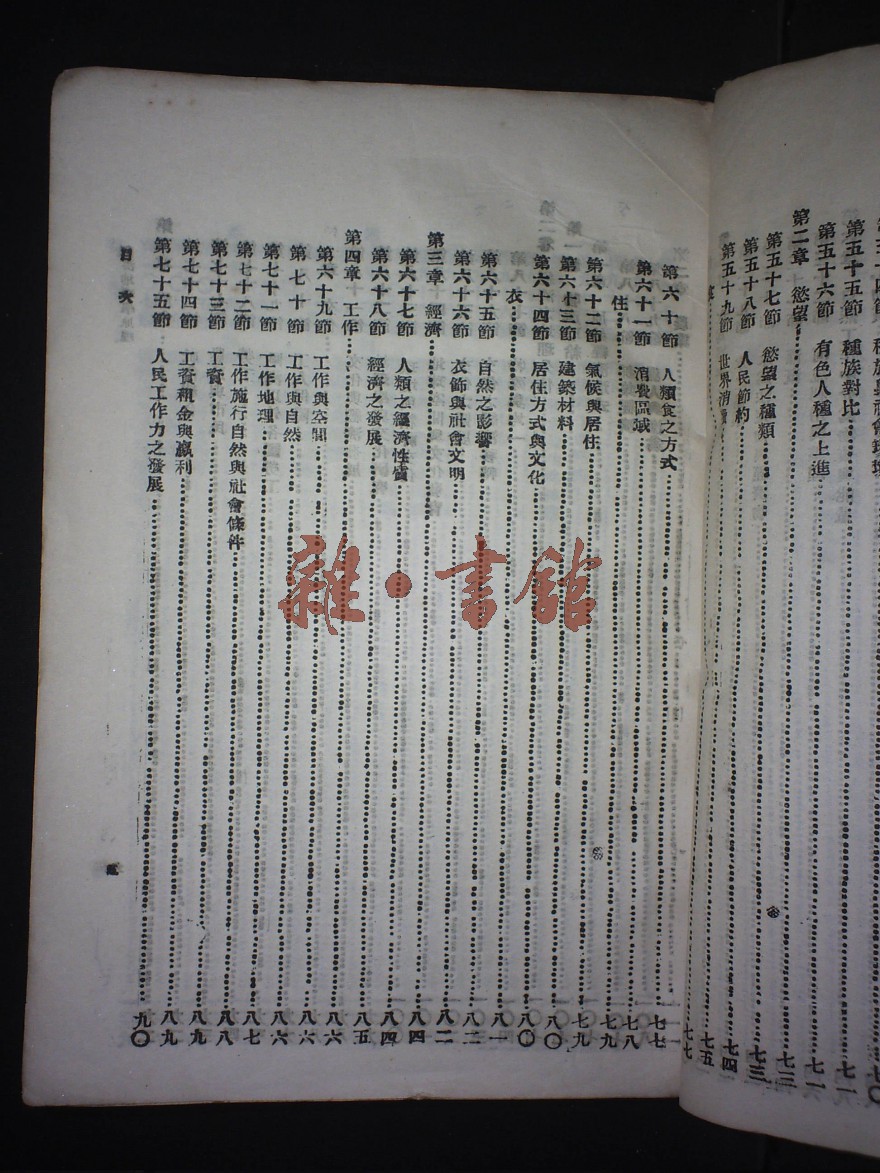 第五十五節 種族對比 七一
第五十六節 有色人種之上進 七一
第二章 慾望 七三
第五十七節 慾望之種類 七三
第五十八節 人民節約 七四
第五十九節 世界消費 七五
七七
第六十節 人類食之方式 七七
第六十一節 消費區域 七八
住 七九
第六十二節 氣候與居住 七九
第六十三節 建築材料 八〇
第六十四節 居住方式與文化 八〇
衣 八一
第六十五節 自然之影響 八二
第六十六節 衣飾與社會文明 八二
第三章 經濟 八四
第六十七節 人類之經濟性質 八四
第六十八節 經濟之發展 八五
第四章 工作 八六
第六十九節 工作與空間 八六
第七十節 工作與自然 八六
第七十一節 工作地理 八七
第七十二節 工作施行自然與社會條件 八八
第七十三節 工資 八九
第七十四節 工資租金與贏利 八九
第七十五節 人民工作力之發展 九〇
目次
雜·書館